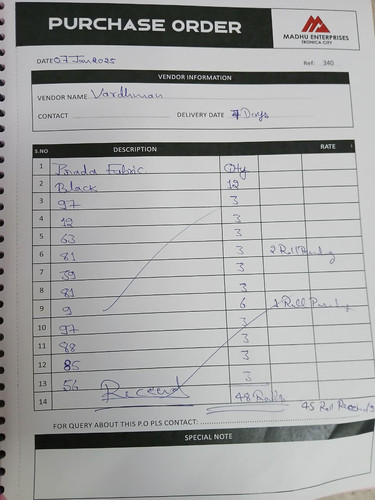 PURCHASE ORDER
MADHU ENTERPRISES
TRONICA CITY
DATE 07 Jan 2025
Ref: 340
VENDOR INFORMATION
VENDOR NAME Vardhman
CONTACT DELIVERY DATE 7 Days
S.NO DESCRIPTION RATE
1 Prada Fabric Qty
2 Black 12
3 97 3
4 12 3
5 63 3
6 81 3 2 Roll Pending
7 39 3
8 81 3
9 9 6 1 Roll Pending
10 97 3
11 88 3
12 85 3
13 56 3
14 Received 48 Rolls 45 Roll Received
FOR QUERY ABOUT THIS P.O PLS CONTACT:
SPECIAL NOTE